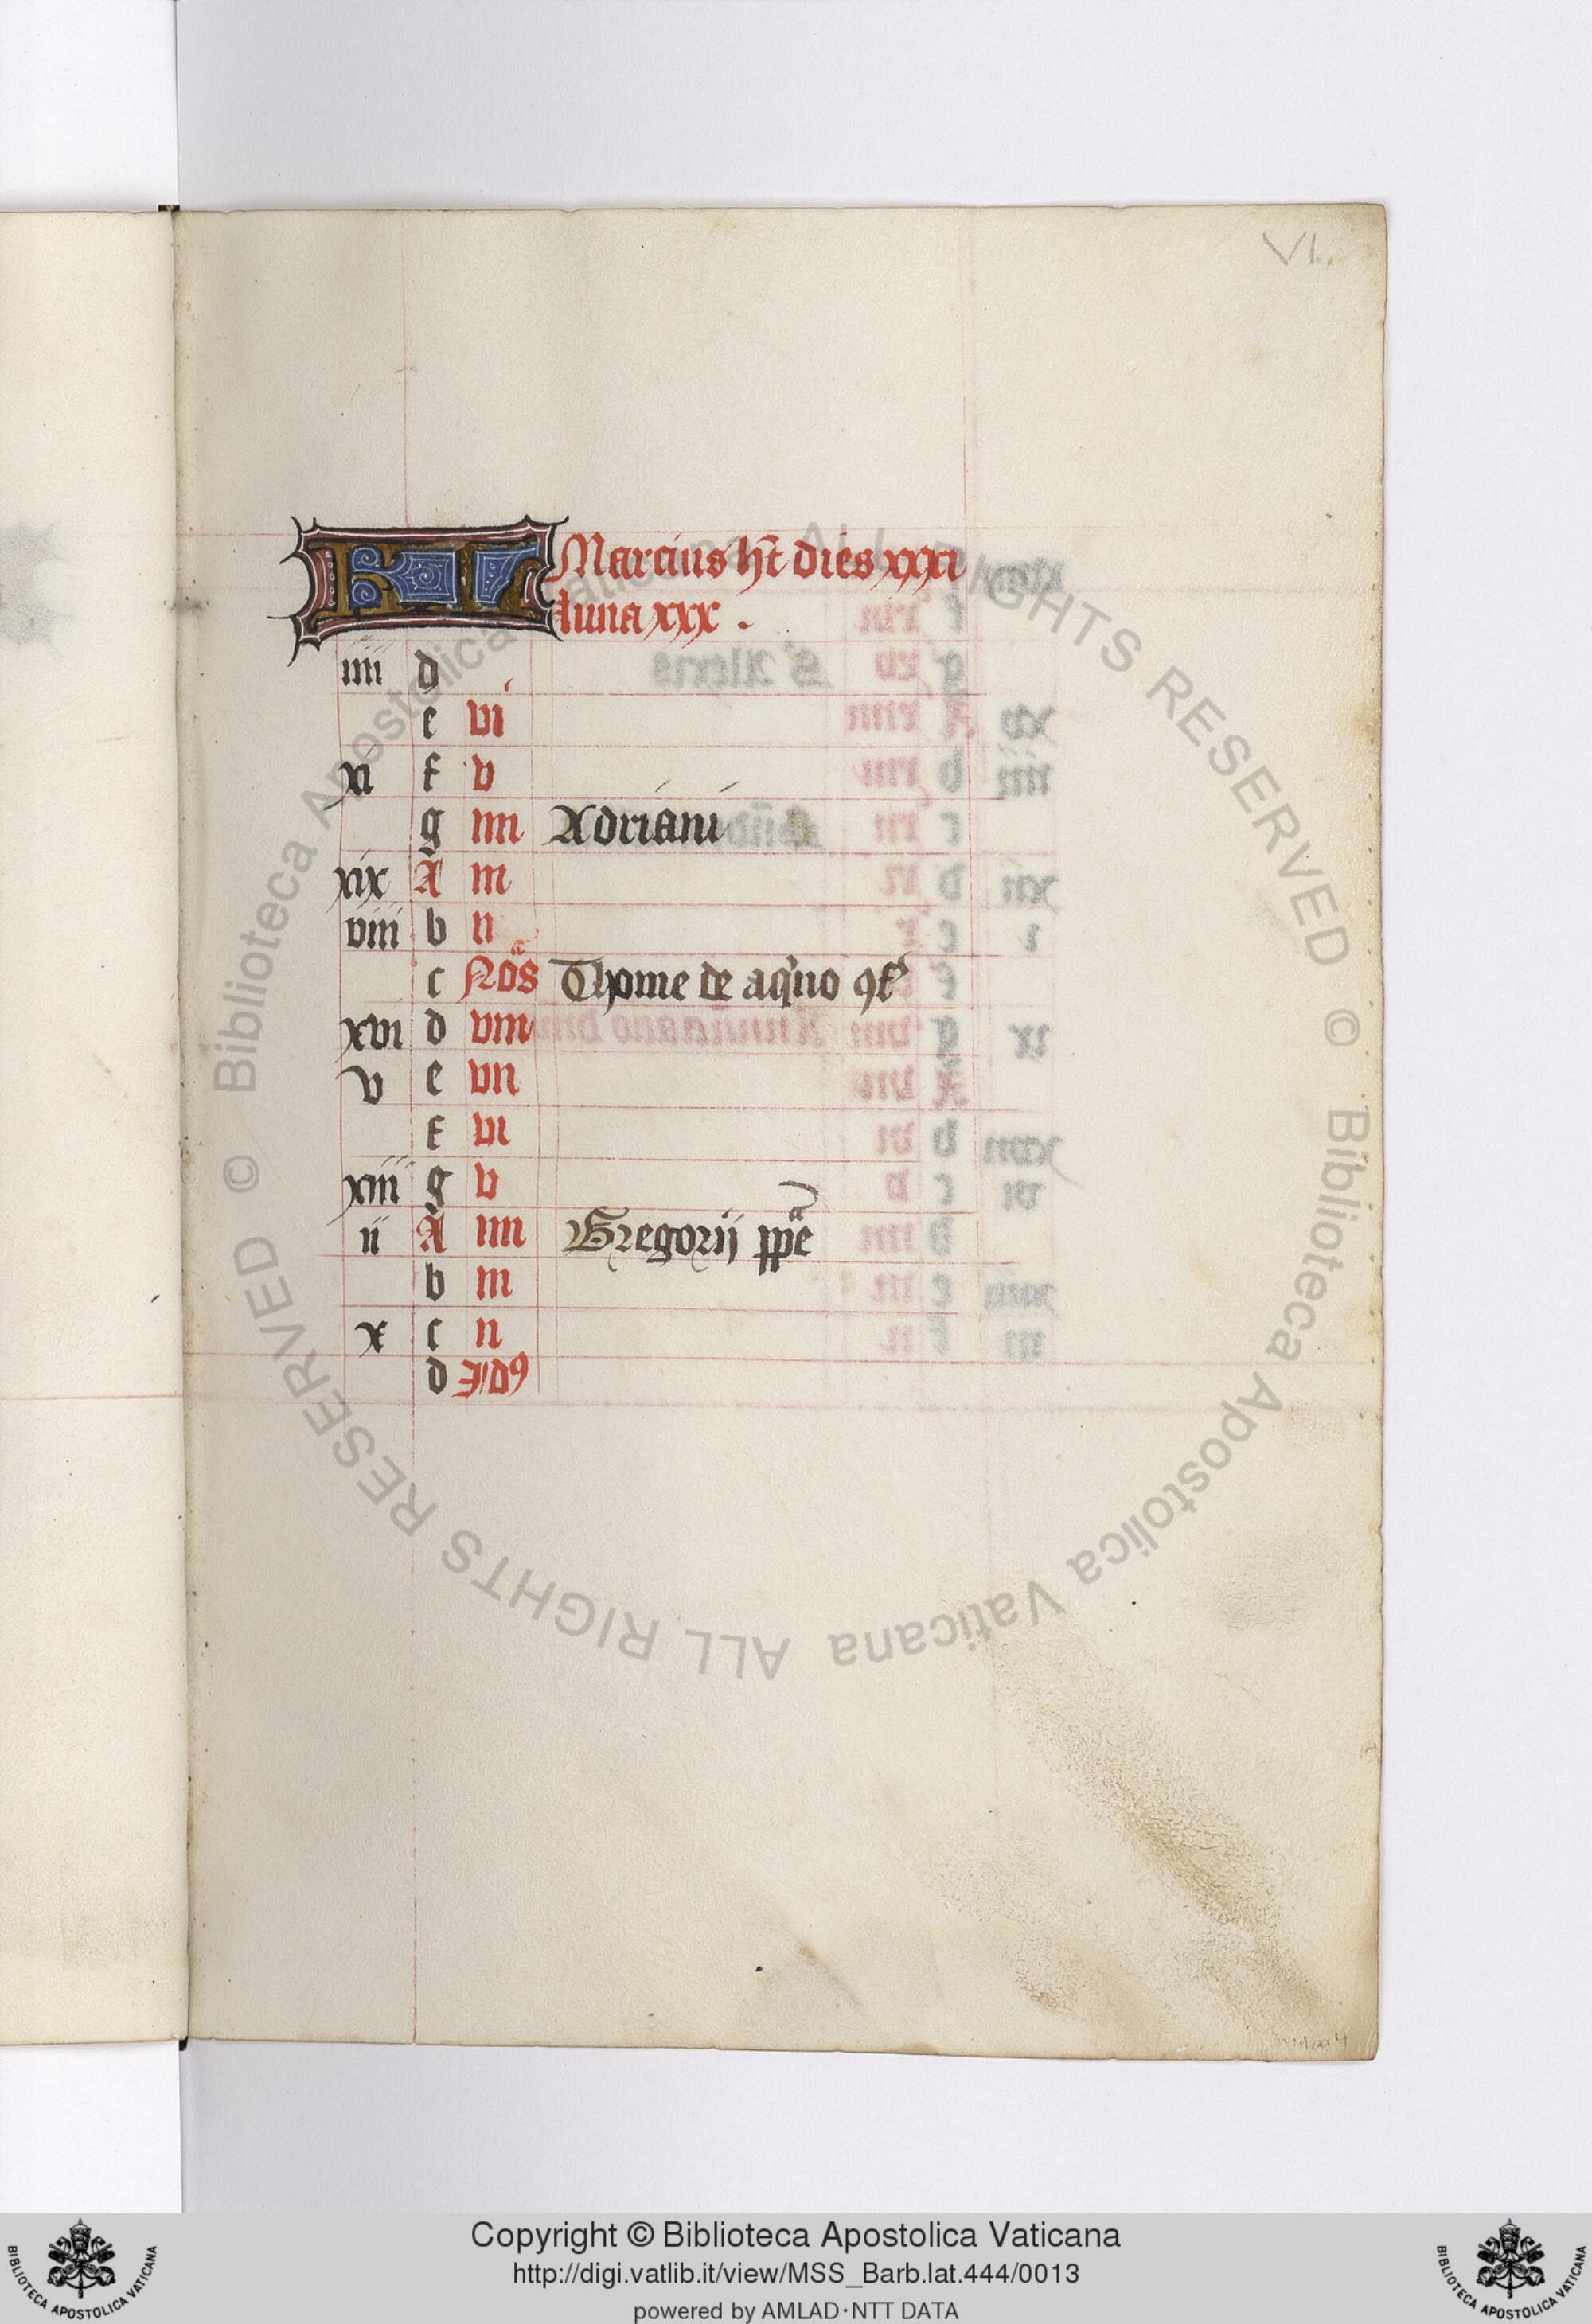 VI.
KL Marcius hēt dies xxxi
luna xxx .
iiii d
e vi
xi f v
g iiii Adriani
xix A iii
viii b ii
c Noās Thome de aq'no ꝯf
xvi d viii
v e vii
f vi
xiii g v
ii A iiii Gregorij ppē
b iii
x c ii
d Idꝰ
© Biblioteca Apostolica Vaticana ALL RIGHTS RESERVED
© Biblioteca Apostolica Vaticana ALL RIGHTS RESERVED
Copyright © Biblioteca Apostolica Vaticana
http://digi.vatlib.it/view/MSS_Barb.lat.444/0013
powered by AMLAD·NTT DATA
BIBLIOTECA APOSTOLICA VATICANA
BIBLIOTECA APOSTOLICA VATICANA